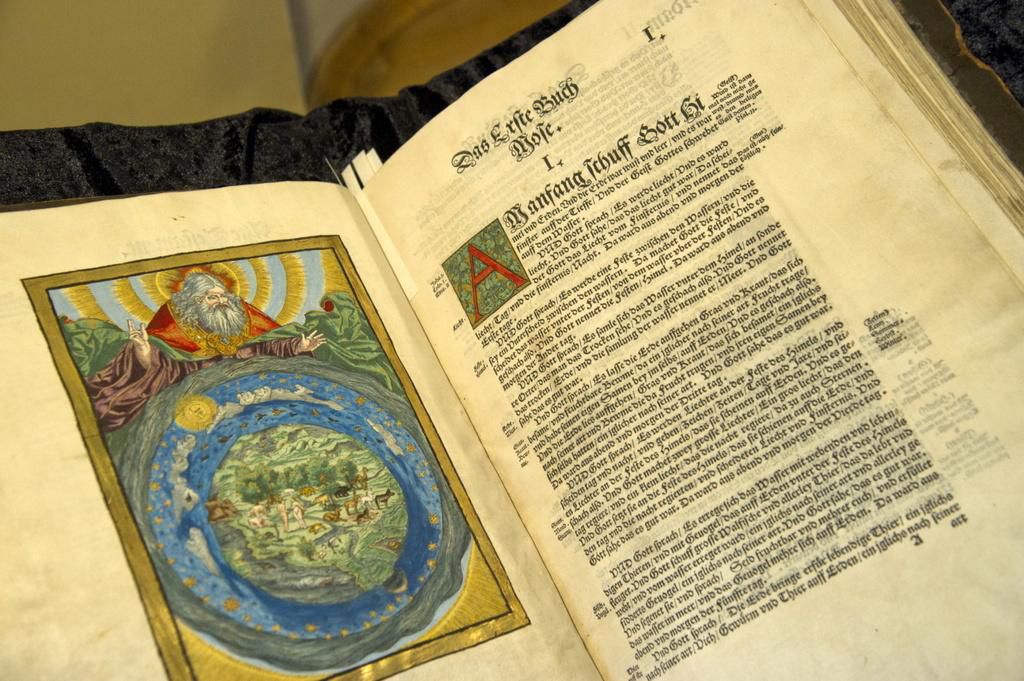 I.
Das Erste Buch
Mose.
I.
AManfang schuff Gott Hi
mel vnd Erden. Vnd die Erde war wüst vnd leer / vnd es war
finster auff der Tieffe / Vnd der Geist Gottes schwebet
auff dem Wasser.
VND Gott sprach / Es werde liecht / Vnd es ward
liecht / Vnd Gott sahe das das liecht gut war / Da scheidet
Gott das Liecht vom Finsternis / vnd nennet das
liecht / Tag / vnd die finsternis / Nacht. Da ward aus abend vnd morgen der
Erste tag.
VND Gott sprach / Es werde eine Feste zwischen den Wassern / vnd die
sey ein Vnterscheid zwischen den wassern. Da machet Gott die Feste / vnd
scheidet das wasser vnter der Festen / von dem wasser vber der Festen / Vnd es
geschach also. Vnd Gott nennet die Festen / Himel. Da ward aus abend vnd
morgen der Ander tag.
VND Gott sprach / Es samle sich das Wasser vnter dem Himel / an sonde
re Orter / das man das Trocken sehe / Vnd es geschach also. Vnd Gott nennet
das trocken / Erde / vnd die samlung der wasser nennet er / Meer. Vnd Gott
sahe das es gut war.
VND Gott sprach / Es lasse die Erde auffgehen Gras vnd Kraut / das sich
besame / vnd fruchtbare Bewme / da ein jglicher nach seiner art Frucht trage /
vnd habe seinen eigen Samen bey jm selbs / auff Erden / Vnd es geschach also.
Vnd die Erde lies auffgehen / Gras vnd Kraut / das sich besamet / ein jglichs
nach seiner art / vnd Bewme die da Frucht trugen / vnd jren eigen Samen bey
sich selbs hatten / ein jglicher nach seiner art. Vnd Gott sahe das es gut war.
Da ward aus abend vnd morgen der Dritte tag.
VND Gott sprach / Es werden Liechter an der Feste des Himels / vnd
scheiden tag vnd nacht / vnd geben / Zeichen / Zeiten / Tage vnd Jare / vnd seien
Liechter an der Feste des Himels / das sie scheinen auff Erden / Vnd es ge
schach also. Vnd Gott machet zwey grosse Liechter / Ein gros Liecht / das den
tag regiere / vnd ein klein Liecht / das die nacht regiere / dazu auch Sternen.
Vnd Gott setzt sie an die Feste des Himels / das sie schienen auff die Erde / vnd
den tag vnd die nacht regierten / vnd scheideten Liecht vnd Finsternis. Vnd
Gott sahe das es gut war. Da ward aus abend vnd morgen der Vierde tag.
VND Gott sprach / Es errege sich das Wasser mit webenden vnd leben
digen Thieren / vnd mit Geuogel / das auff Erden vnter der Feste des Himels
fleuget. Vnd Gott schuff grosse Walfische vnd allerley Thier / das da lebt vnd
webt / vnd vom wasser erreget ward / ein jglichs nach seiner art / vnd allerley ge
fidderts Geuogel / ein jglichs nach seiner art / Vnd Gott sahe das es gut war /
Vnd segenet sie / vnd sprach / Seid fruchtbar vnd mehret euch / vnd erfüllet
das wasser im meer / vnd das Geuogel mehre sich auff Erden. Da ward aus
abend vnd morgen der Fünffte tag.
Vnd Gott sprach / Die Erde bringe erfür lebendige Thier / ein jglichs
nach seiner art / Vieh / Gewürm vnd Thier auff Erden / ein jglichs nach seiner
art
A